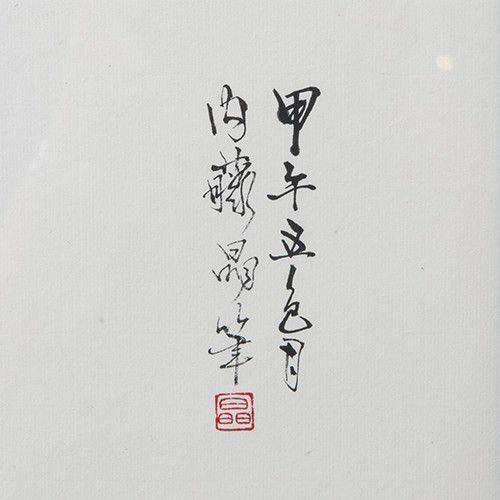 甲午五色月
内藤晶筆
晶